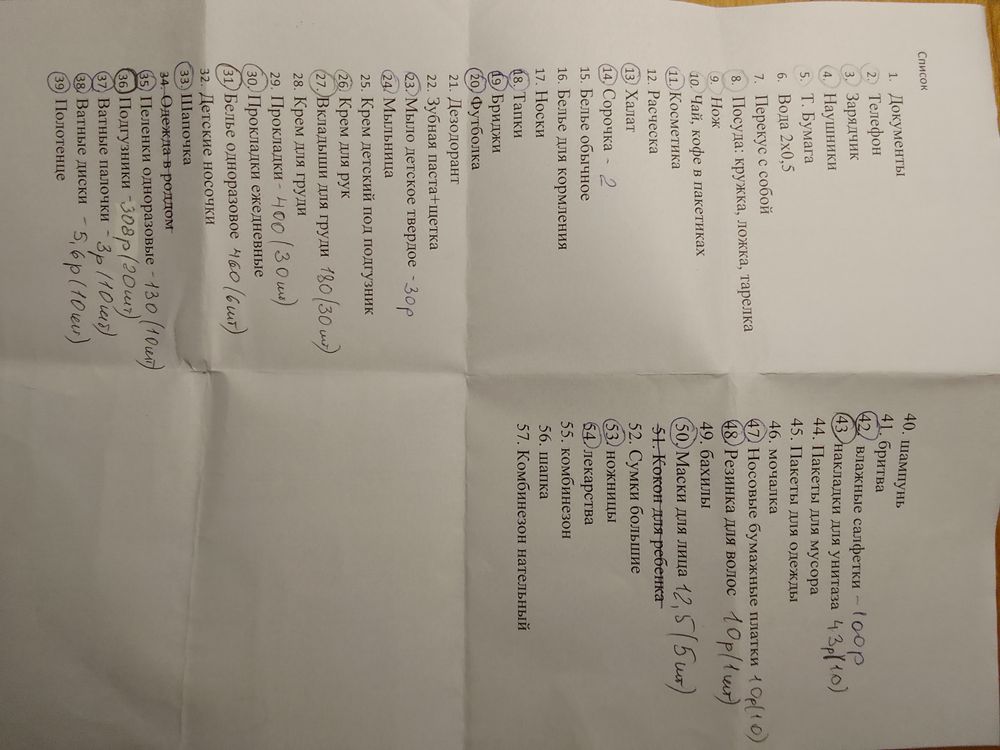 Список
1. Документы
2. Телефон
3. Зарядчик
4. Наушники
5. Т. Бумага
6. Вода 2х0,5
7. Перекус с собой
8. Посуда: кружка, ложка, тарелка
9. Нож
10. Чай, кофе в пакетиках
11. Косметика
12 Расческа
13. Халат
14. Сорочка - 2
15. Белье обычное
16. Белье для кормления
17. Носки
18. Тапки
19. Бриджи
20. Футболка
21. Дезодорант
22. Зубная паста+щетка
23. Мыло детское твердое - 30р
24. Мыльница
25. Крем детский под подгузник
26. Крем для рук
27. Вкладыши для груди 180 (30 шт)
28. Крем для груди
29. Прокладки - 400 (30 шт)
30. Прокладки ежедневные
31. Белье одноразовое 460 (6 шт)
32. Детские носочки
33. Шапочка
34. Одежда в роддом
35. Пеленки одноразовые - 130 (10 шт)
36. Подгузники - 308р (20 шт)
37. Ватные палочки - 3р (10 шт)
38. Ватные диски - 5,6р (10 шт)
39. Полотенце
40. шампунь
41. бритва
42. влажные салфетки - 100р
43. накладки для унитаза 43р (10)
44. Пакеты для мусора
45. Пакеты для одежды
46. мочалка
47. Носовые бумажные платки 10р (10)
48. Резинка для волос 10р (1 шт)
49. бахилы
50. Маски для лица 12,5 (5 шт)
51. Кокон для ребенка
52. Сумки большие
53. ножницы
54. лекарства
55. комбинезон
56. шапка
57. Комбинезон нательный